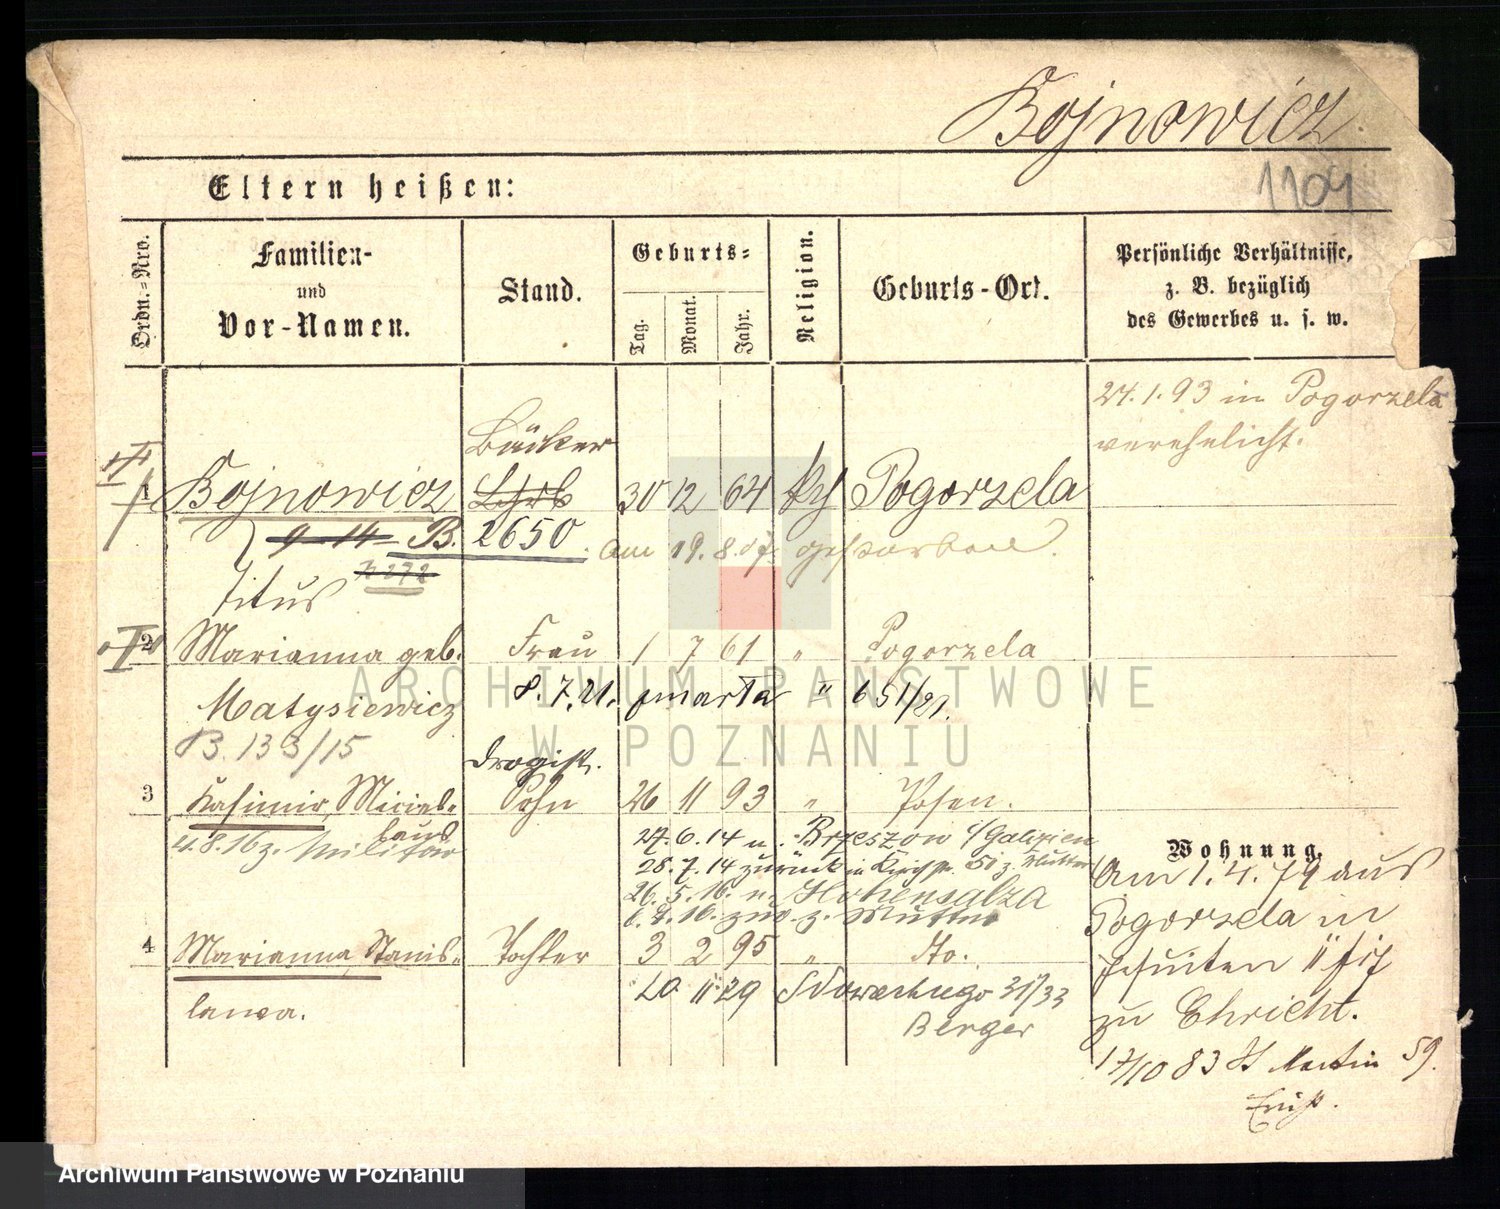 Bojnowicz
1104
Eltern heißen:
Ordn.-Nro.
Familien-
und
Vor-Namen.
Stand.
Geburts-
Tag.
Monat.
Jahr.
Religion.
Geburts-Ort.
Persönliche Verhältnisse,
z. B. bezüglich
des Gewerbes u. s. w.
24.1.93 in Pogorzela
verehelicht.
Bäcker
1 Bojnowicz 30 12 64 Pogorzela
9 14 B. 2650. am 19. 8. gestorben.
Titus
2 Marianna geb. Frau 1 7 61 " Pogorzela
Matysiewicz 8.7.21. zmarła " 651/21.
B. 133/15
Drogist.
3 Kasimir, Miecislaus Sohn 26 11 93 " Posen.
4.8.16 z. Militär
27.6.14 n. Brzeszow i/Galizien
28.7.14 zurück in z. Mutter
26.5.16. n. Hohensalza
zur. z. Mutter
4 Marianna, Stanis- Tochter 3 2 95 " dto.
lawa. 20 11 29 31/33
Berger
Wohnung.
Am 1.4.79 aus
Pogorzela in
Jesuiten 11
zu Ehricht.
1/10 83 St Martin 59.
ARCHIWUM PAŃSTWOWE
W POZNANIU
Archiwum Państwowe w Poznaniu